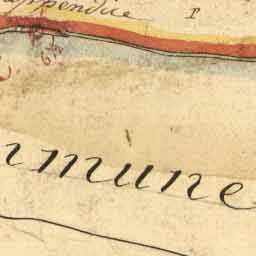 appendice I
mmune